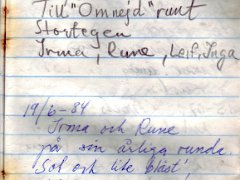 Till "Omnejd" runt
Storlegen
Irma, Rune, Leif, Inga
19/6-84
Irma och Rune
på sin årliga runda.
Sol och lite blåst,